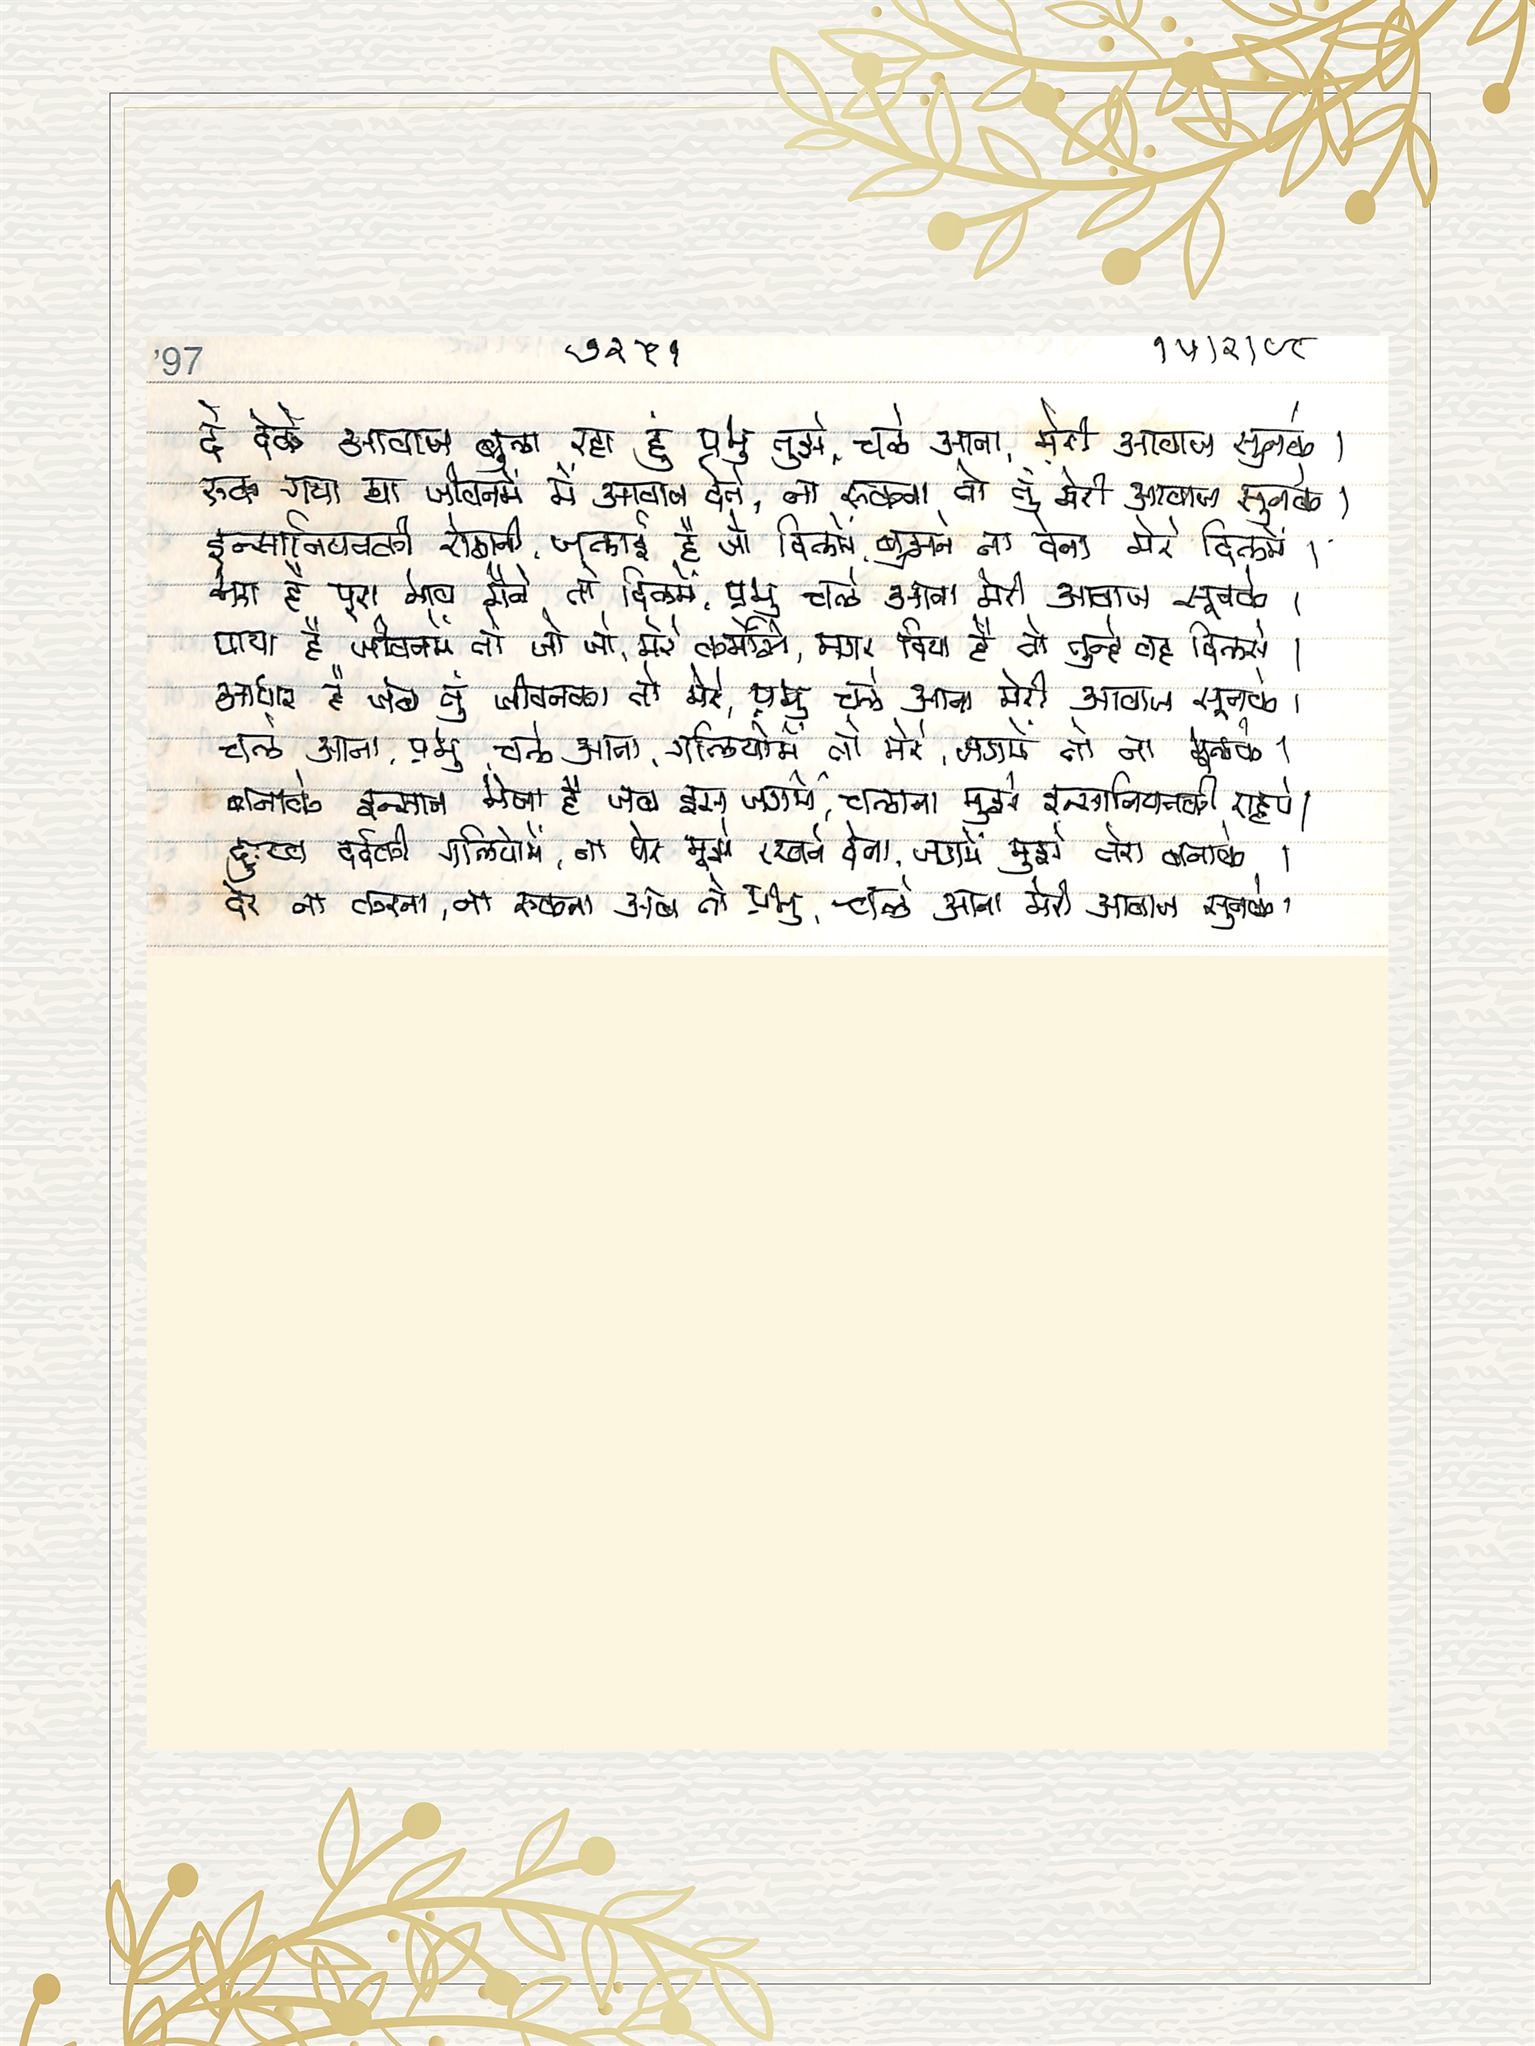 '97 ७२५१ १५/२/९८
दे देके आवाज बुला रहा हुं प्रभु तुझे, चले आना, मेरी आवाज सुनके ।
रुक गया था जीवनमें मैं आवाज देते, ना रुकना तो तुं मेरी आवाज सुनके ।
इन्सानियतकी रोशनी, जलाई है जो दिलमें, बुझने ना देना मेरे दिलमें ।
भरा है पूरा भाव मैंने तो दिलमें, प्रभु चले आना मेरी आवाज सूनके ।
पाया है जीवनमें तो जो जो, मेरे कर्मोसे, मगर दिया है तो तुम्हे वह दिलसे ।
आधार है जब तुं जीवनका तो मेरे, प्रभु चले आना मेरी आवाज सूनके ।
चले आना, प्रभु चले आना, गलियोमें तो मेरे, जगमें तो ना भूलके ।
बनाके इन्सान भेजा है जब इस जगमें, चलाना मुझे इन्सानियतकी राहपे ।
दुःख दर्दकी गलियोमें, ना पैर मूझे रखने देना, जगमें मुझे तेरा बनाके ।
देर ना करना, ना रुकना अब तो प्रभु, चले आना मेरी आवाज सुनके ।